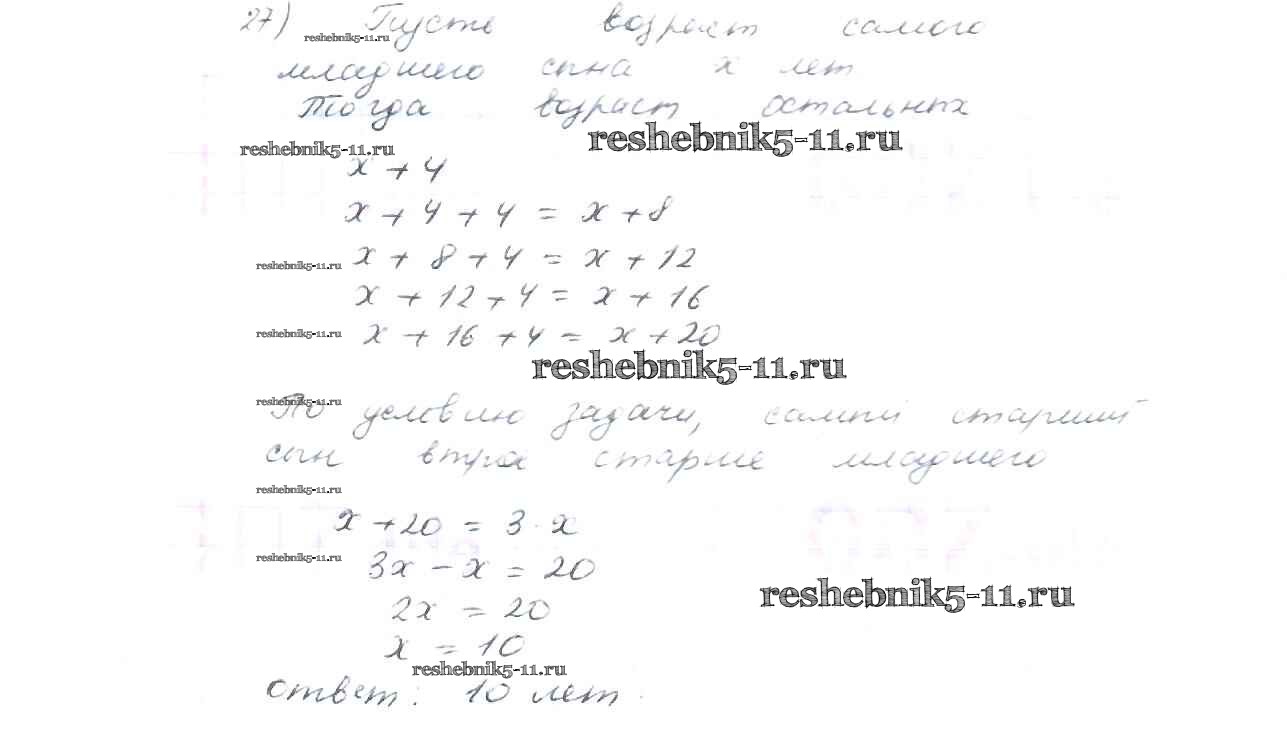 27) Пусть возраст самого
reshebnik5-11.ru
младшего сына x лет
Тогда возраст остальных
reshebnik5-11.ru
reshebnik5-11.ru
x + 4
x + 4 + 4 = x + 8
reshebnik5-11.ru x + 8 + 4 = x + 12
x + 12 + 4 = x + 16
reshebnik5-11.ru x + 16 + 4 = x + 20
reshebnik5-11.ru
reshebnik5-11.ru
По условию задачи, самый старший
сын втрое старше младшего
reshebnik5-11.ru
x + 20 = 3 · x
reshebnik5-11.ru 3x - x = 20
reshebnik5-11.ru
2x = 20
x = 10
reshebnik5-11.ru
Ответ: 10 лет.